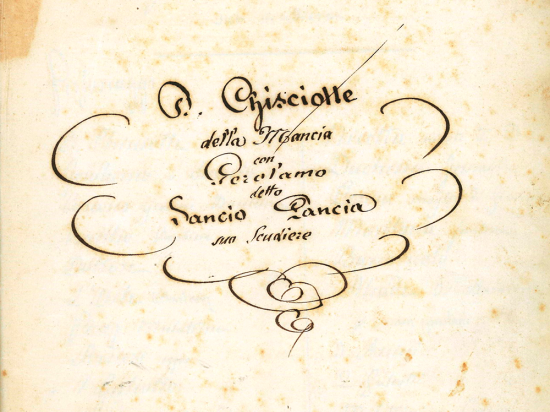 D. Chisciotte
della Mancia
con
Gerolamo
detto
Sancio Pancia
suo Scudiere